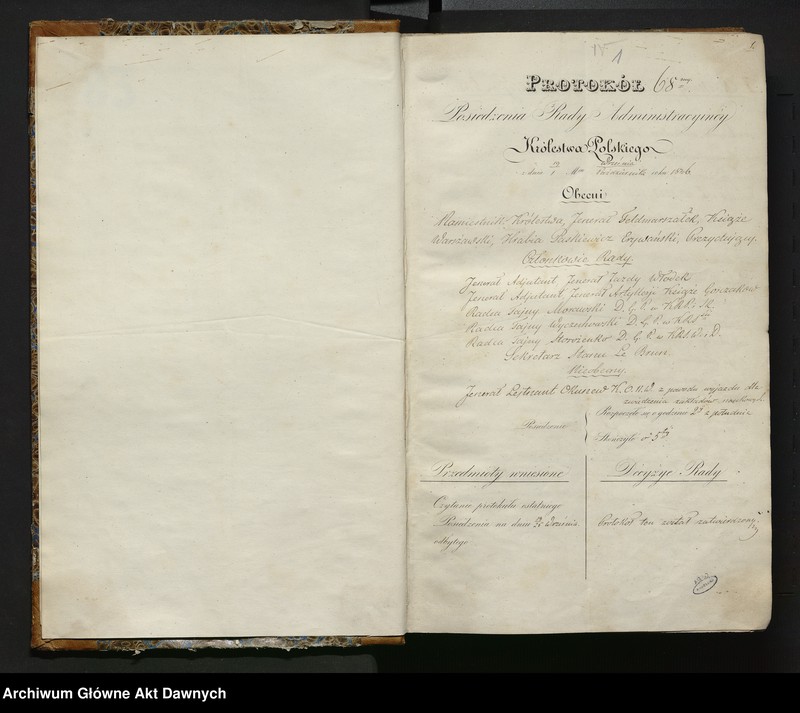 1
PROTOKÓŁ 68
Posiedzenia Rady Administracyjnéy
Królestwa Polskiego
Września
w dniu Października roku 1846
Obecni
Namiestnik Królestwa, Jenerał Feldmarszałek, Książe
Warszawski, Hrabia Paskiewicz Erywański, Prezydujący.
Członkowie Rady.
Jenerał Adjutant Jenerał Jazdy Włodek
Jenerał Adjutant Jenerał Artylleryi Książe Gorczakow
Radca Tajny Morawski D. G. P. w K.R.P. i Sk.
Radca Tajny Wyczechowski D. G. P. w K.R.S.
Radca Tajny Storożenko D. G. P. w
Sekretarz Stanu Le Brun.
Nieobecny.
Jenerał Lejtenant Okuniew K.O.N.W. z powodu wyjazdu dla
zwiedzenia zakładów naukowych
Rozpoczęto się o godzinie 2 z południa
Posiedzenie
Skończyło o 5
Przedmioty wniesione
Decyzye Rady
Czytanie protokułu ostatniego
Posiedzenia na dniu Września
odbytego
Protokół ten został zatwierdzony.
Archiwum Główne Akt Dawnych